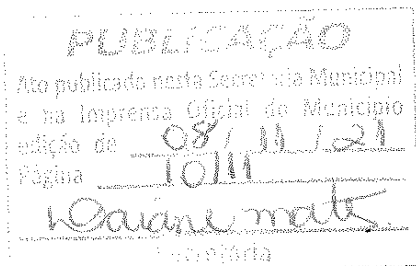 PUBLICAÇÃO
Ato publicado nesta Secretaria Municipal
e na Imprensa Oficial do Município
edição de 08/11/21
Página 10/11
Daiane
Secretária